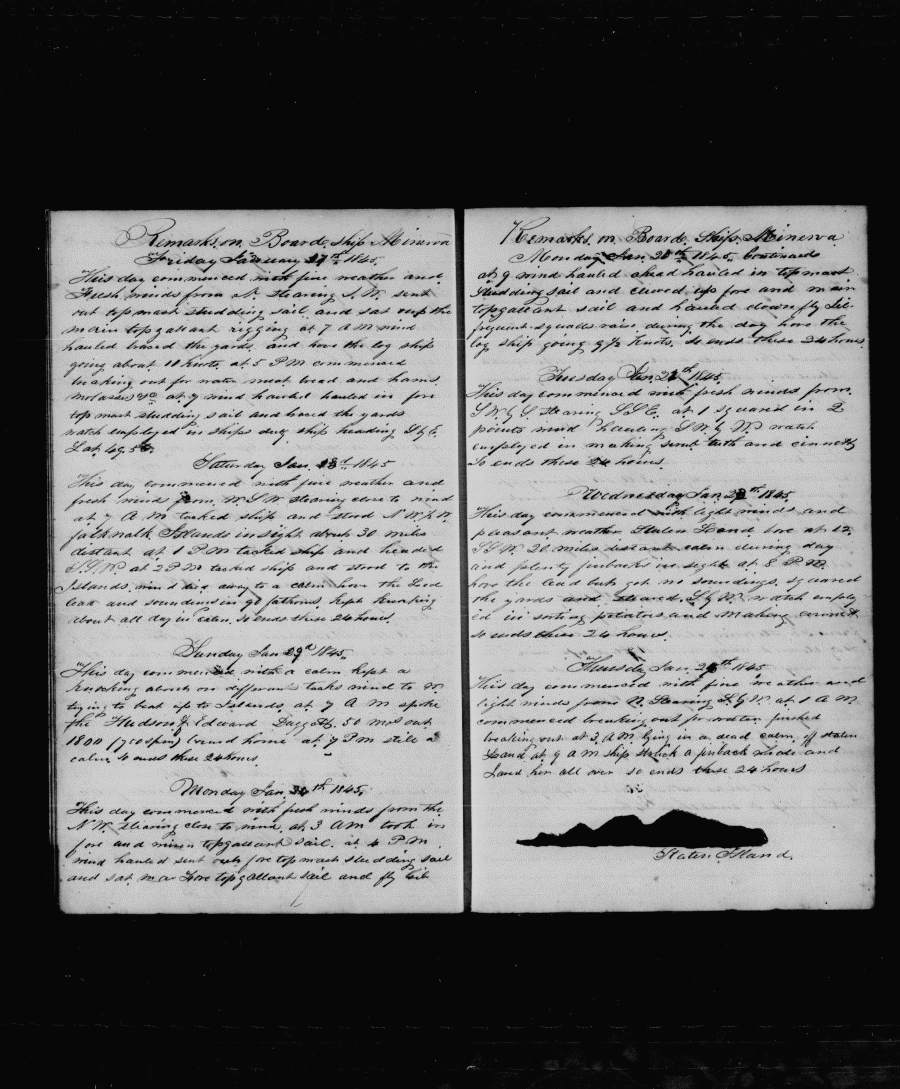 Remarks on Board Ship Minerva
Friday January 27th 1845.
This day commenced with fine weather and
Fresh winds from N. Stearing S.W. sent
out top mast studding sail and sat up the
main topgallant rigging at 7 AM wind
hauled braced the yards and hove the log ship
going about 10 knots at 5 PM commenced
breaking out for water meat bread and hams
molasses &c at 9 wind hauled hauled in fore
top mast studding sail and braced the yards
watch employed in ships duty ship heading S by E.
Lat 49.50
Saturday Jan. 28th 1845
This day commenced with fine weather and
fresh winds from W.S.W stearing close to wind
at 7 A.M. tacked ship and stood N.W by W.
falknalk Islands in sight about 30 miles
distant at 1 P.M tacked ship and headed
S.S.W. at 2 P M tacked ship and stood to the
Islands, wind died away to a calm hove the Led
leat and sounded in 90 fathoms. kept
about all day in calm. so ends these 24 hours.
Sunday Jan 29th 1845.
This day commenced with a calm kept a
knocking about on different tacks wind to W.
trying to beat up to Islands at 7 A M spoke
the Hudson of Edward 50 mos out
1800 (700 spm) bound home at 7 P M still a
calm. So ends these 24 hours.
Monday Jan. 30th 1845.
This day commenced with fresh winds from the
N.W. stearing close to wind. at 3 A M took in
fore and main topgallant sail. at 4 P.M.
wind hauled sent out fore top mast studding sail
and sat main Fore topgallant sail and fly
Remarks on Board Ship Minerva
Monday Jan. 1845. Continued
at 9 wind hauled ahead hauled in top mast
studding sail and clewed up fore and main
topgallant sail and hauled down fly Jib
frequent squalls rain during the day hove the
log ship going 9 1/2 knots. so ends these 24 hours.
Tuesday Jan. 1845.
This day commenced with fresh winds from
S.W. by S stearing S.S.E. at 1 squared in 2
points wind hauling S.W. by W. watch
employed in making and
So ends these 24 hours.
Wednesday Jan. 1845.
This day commenced with light winds and
pleasant weather Staten Land bore at 12
S.S.W. 20 miles distant calm during day
and plenty finbacks in sight at 8 P.M
hove the lead but got no soundings. squared
the yards and steared S by W. watch employ-
ed in sorting potatoes and making
so ends these 24 hours.
Thursday Jan. 1845
This day commenced with fine weather and
light winds from N. Stearing S. by W. at 1 A M
commenced breaking out for water finished
breaking out at 3 A M lying in a dead calm. off staten
Land at 9 a m ship struck a finback whale and
Jard her all over so ends these 24 hours
Staten Island.